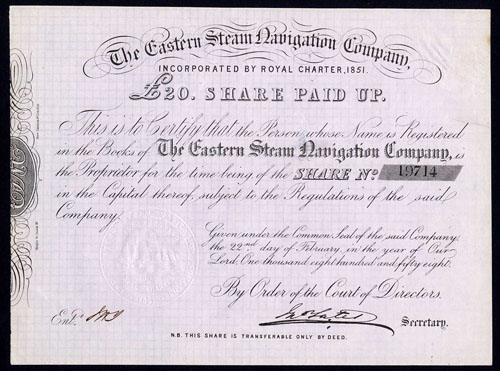 The Eastern Steam Navigation Company,
INCORPORATED BY ROYAL CHARTER, 1851.
£20. SHARE PAID UP.
This is to Certify that the Person whose Name is Registered
in the Books of The Eastern Steam Navigation Company, is
the Proprietor for the time being of the SHARE No. 19714
in the Capital thereof, subject to the Regulations of the said
Company.
Given under the Common Seal of the said Company,
the 22nd day of February, in the year of Our
Lord, One thousand eight hundred and fifty eight.
By Order of the Court of Directors.
Entd.
Secretary.
N.B. THIS SHARE IS TRANSFERABLE ONLY BY DEED.